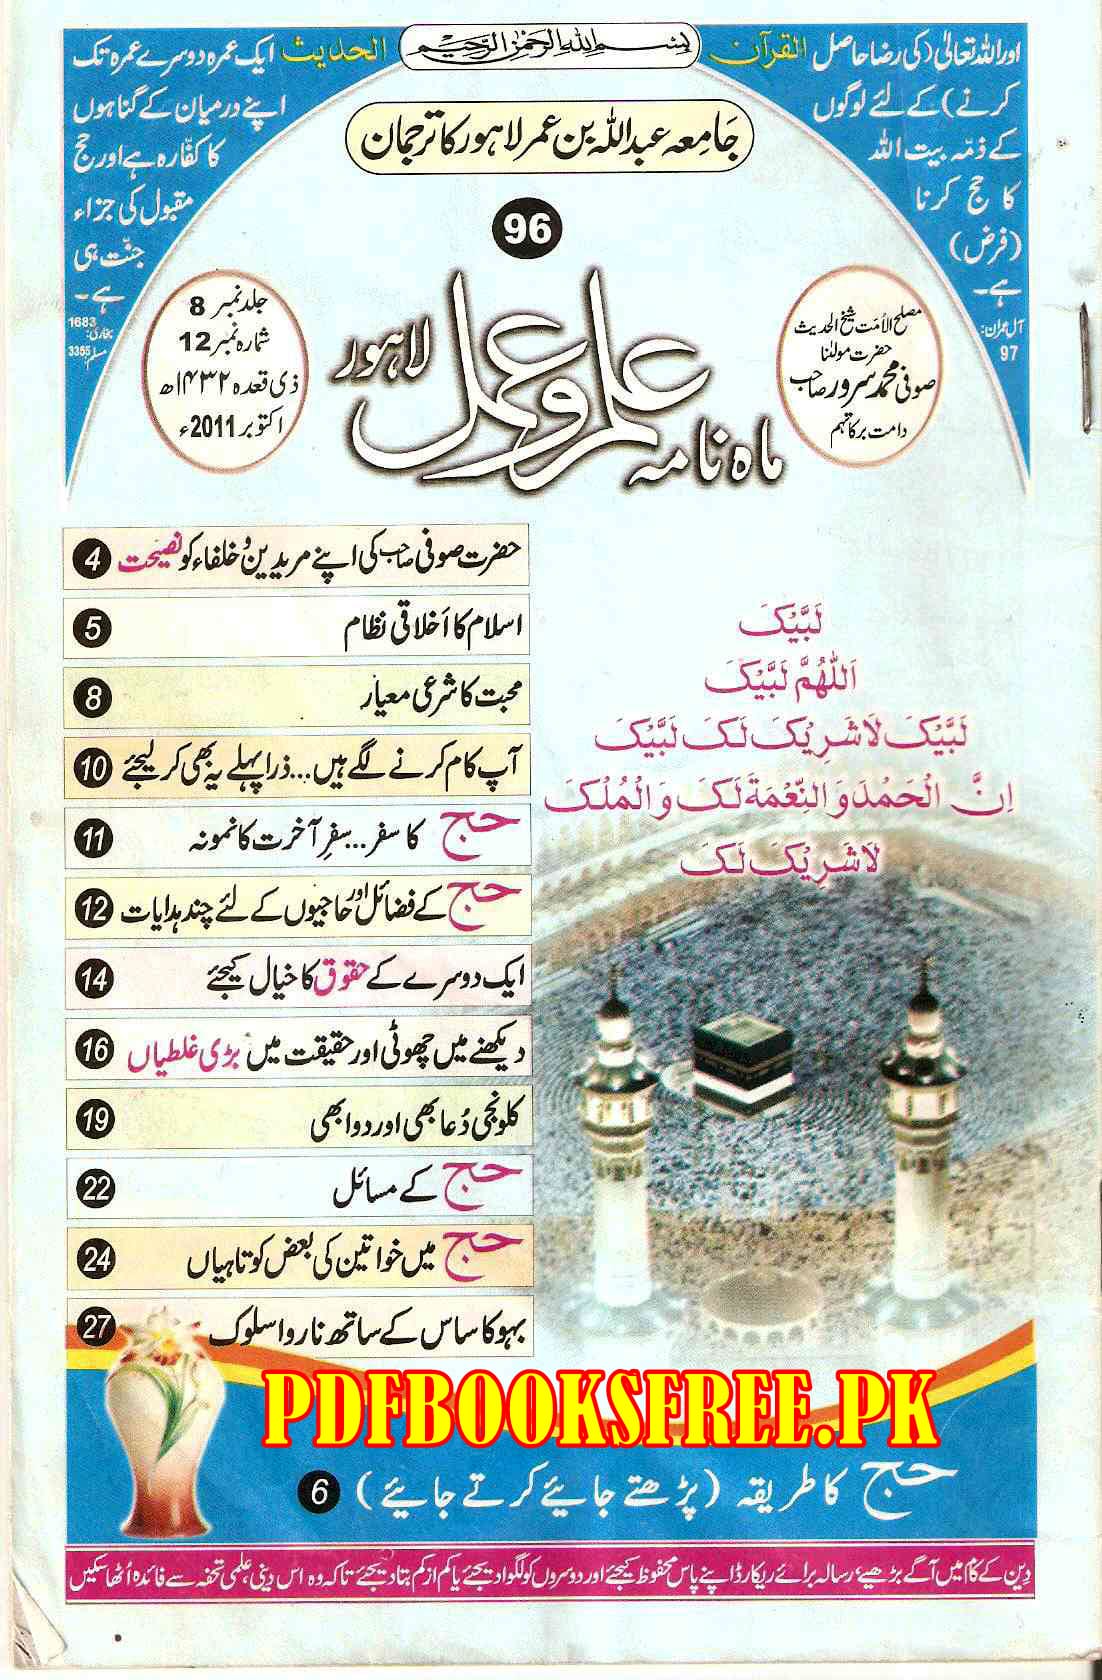 بسم الله الرحمن الرحيم
القرآن
اور اللہ تعالیٰ (کی رضا حاصل
کرنے) کے لئے لوگوں
کے ذمّہ بیت اللہ
کا حج کرنا
(فرض)
ہے۔
آل عمران:
97
الحدیث
ایک عمرہ دوسرے عمرہ تک
اپنے درمیان کے گناہوں
کا کفّارہ ہے اور حج
مقبول کی جزاء
جنّت ہی
ہے۔
بخاری: 1683
مسلم: 3355
جامعہ عبداللہ بن عمر لاہور کا ترجمان
96
مصلح الأمت شیخ الحدیث
حضرت مولٰنا
صوفی محمد سرور صاحب
دامت برکاتہم
ماہ نامہ علم و عمل لاہور
جلد نمبر 8
شمارہ نمبر 12
ذی قعدہ ۱۴۳۲ھ
اکتوبر 2011ء
حضرت صوفی صاحب کی اپنے مریدین و خلفاء کو نصیحت 4
اسلام کا اَخلاقی نظام 5
محبت کا شرعی معیار 8
آپ کام کرنے لگے ہیں...ذرا پہلے یہ بھی کر لیجئے 10
حج کا سفر...سفرِ آخرت کا نمونہ 11
حج کے فضائل اور حاجیوں کے لئے چند ہدایات 12
ایک دوسرے کے حقوق کا خیال کیجئے 14
دیکھنے میں چھوٹی اور حقیقت میں بڑی غلطیاں 16
کلونجی دُعا بھی اور دوا بھی 19
حج کے مسائل 22
حج میں خواتین کی بعض کوتاہیاں 24
بہو کا ساس کے ساتھ ناروا سلوک 27
لَبَّيْكَ
اَللّٰهُمَّ لَبَّيْكَ
لَبَّيْكَ لَا شَرِيْكَ لَكَ لَبَّيْكَ
اِنَّ الْحَمْدَ وَالنِّعْمَةَ لَكَ وَالْمُلْكَ
لَا شَرِيْكَ لَكَ
PDFBOOKSFREE.PK
حج کا طریقہ (پڑھتے جایئے کرتے جایئے) 6
دِین کے کام میں آگے بڑھیے، رسالہ برائے ریکارڈ اپنے پاس محفوظ کیجئے اور دوسروں کو لگوا دیجئے یا کم از کم بتا دیجئے تاکہ وہ اس دینی، علمی تحفہ سے فائدہ اُٹھا سکیں